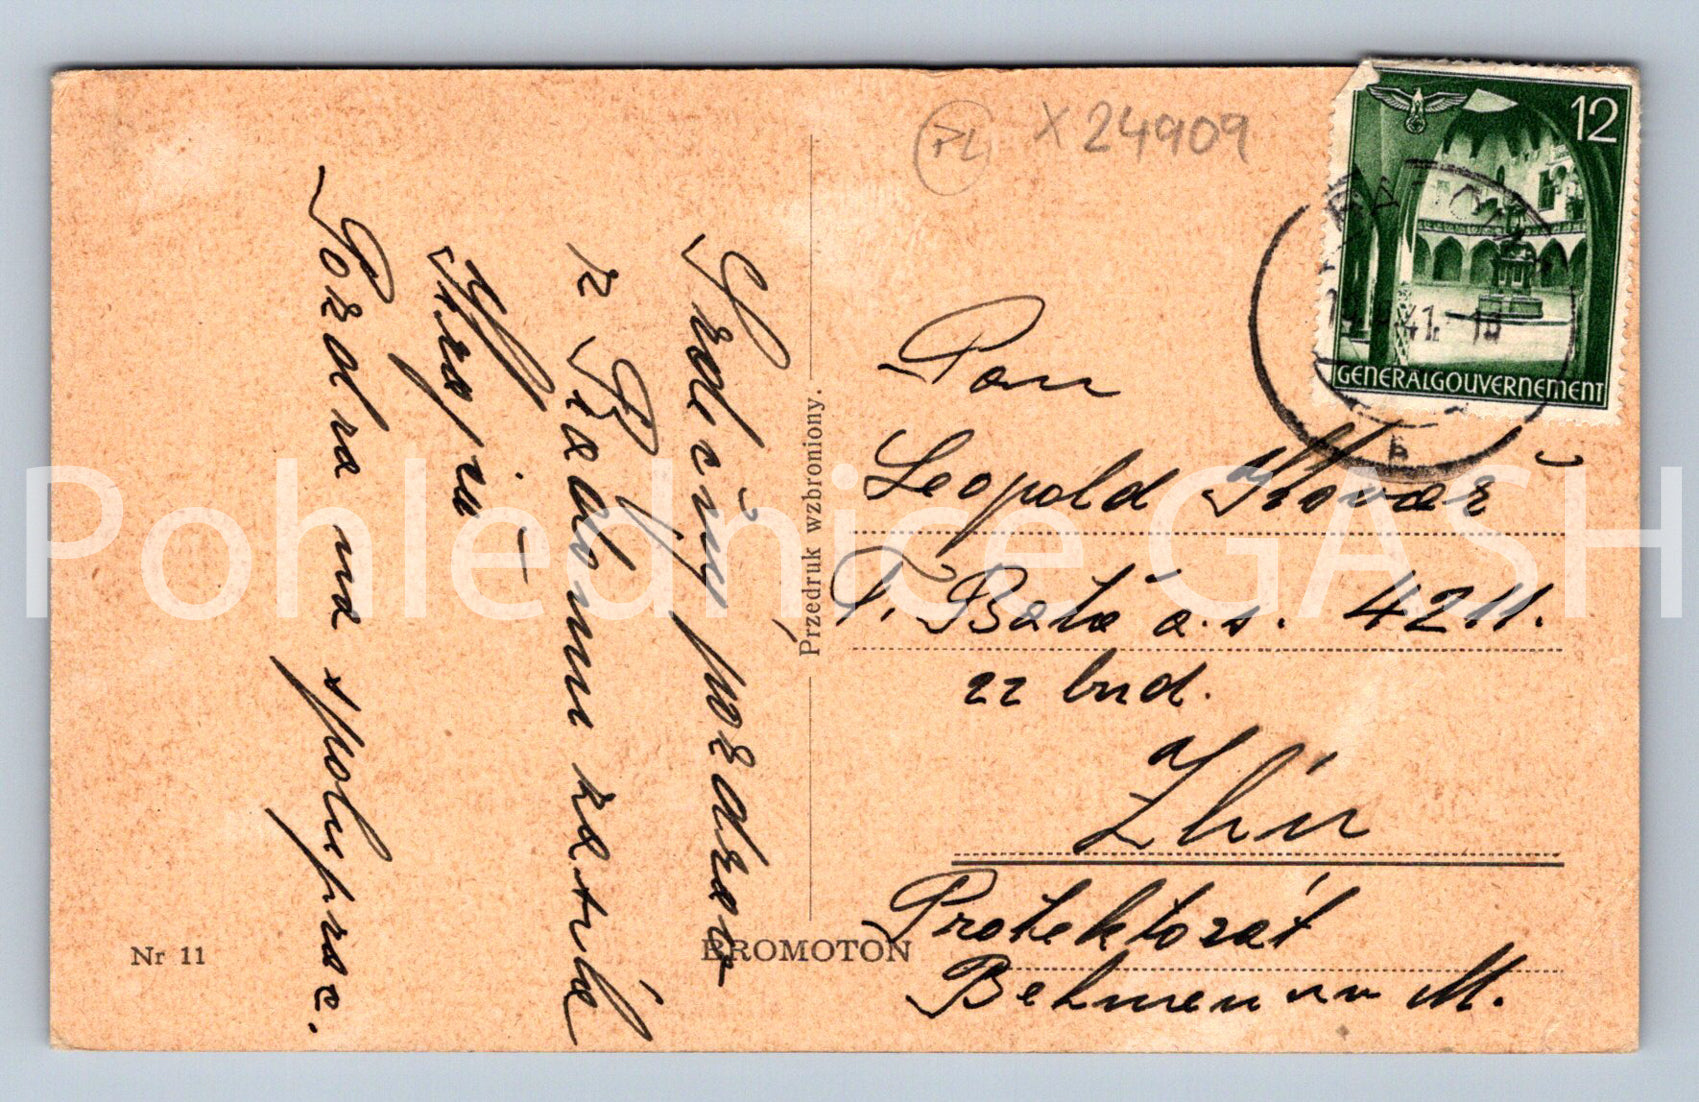 PL X 24909
12
GENERALGOUVERNEMENT
41
Srdečný pozdrav
z Radomu zasílá
Pozdra na spoluprac.
Przedruk wzbroniony.
Pan
Leopold Kovář
T. Baťa a.s. 4211.
22 bud.
Zlín
Protektorát
Behmen u M.
Nr 11
BROMOTON
Pohlednice GASH